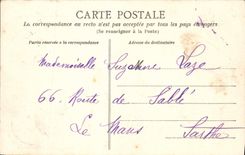 CARTE POSTALE
La correspondance au recto n'est pas acceptée par tous les pays étrangers
(Se renseigner à la Poste)
Partie réservée à la correspondance
Adresse du destinataire
Mademoiselle Suzanne Laze
66 Route de Sablé
Le Mans
Sarthe